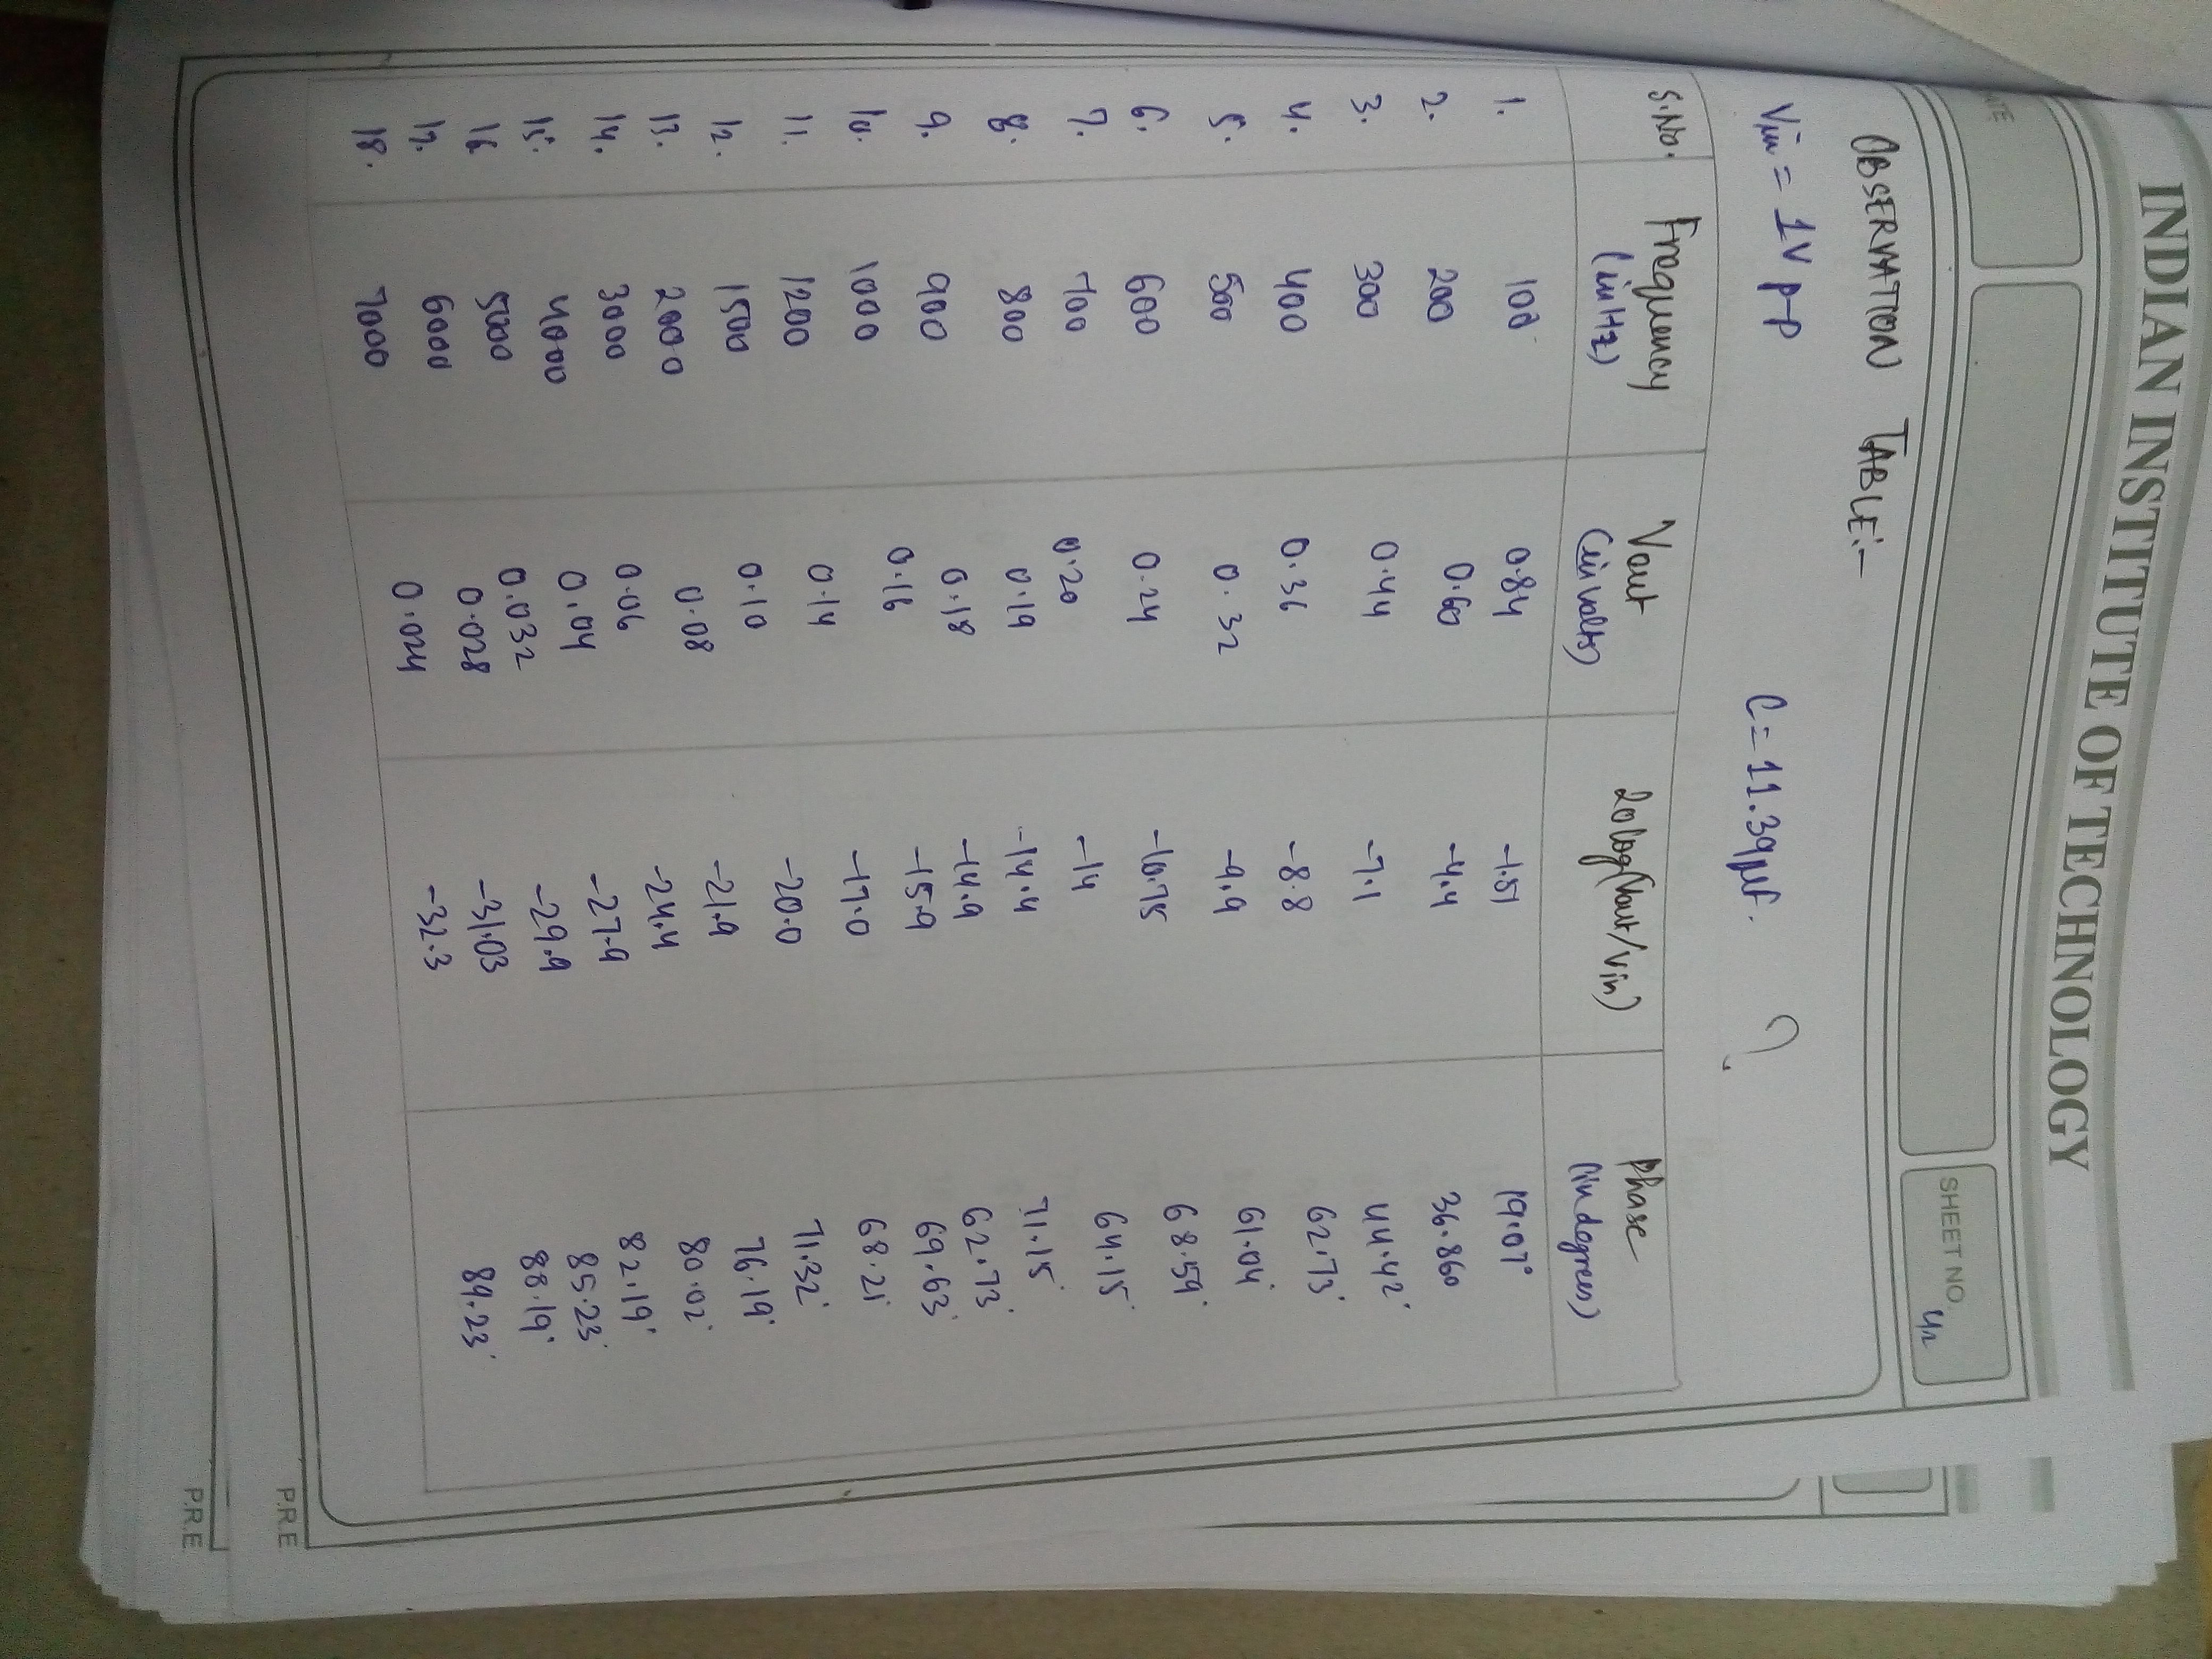 INDIAN INSTITUTE OF TECHNOLOGY
SHEET NO.
OBSERVATION TABLE:-
Vin = 1V p-p C = 11.39μf. ?
S.No. Frequency (in Hz) Vout (in volts) 20log(Vout/Vin) Phase (in degrees)
1. 100 0.84 -1.51 19.07°
2. 200 0.60 -4.4 36.860
3. 300 0.44 -7.1 44.42°
4. 400 0.36 -8.8 62.73°
5. 500 0.32 -9.9 61.04°
6. 600 0.24 -10.75 68.59°
7. 700 0.20 -14 64.15°
8. 800 0.19 -14.4 71.15°
9. 900 0.18 -14.9 62.73°
10. 1000 0.16 -15.9 69.63°
11. 1200 0.14 -17.0 68.21°
12. 1500 0.10 -20.0 71.32°
13. 2000 0.08 -21.9 76.19°
14. 3000 0.06 -24.4 80.02°
15. 4000 0.04 -27.9 82.19°
16 5000 0.032 -29.9 85.23°
17. 6000 0.028 -31.03 88.19°
18. 7000 0.024 -32.3 89.23°
P.R.E
P.R.E